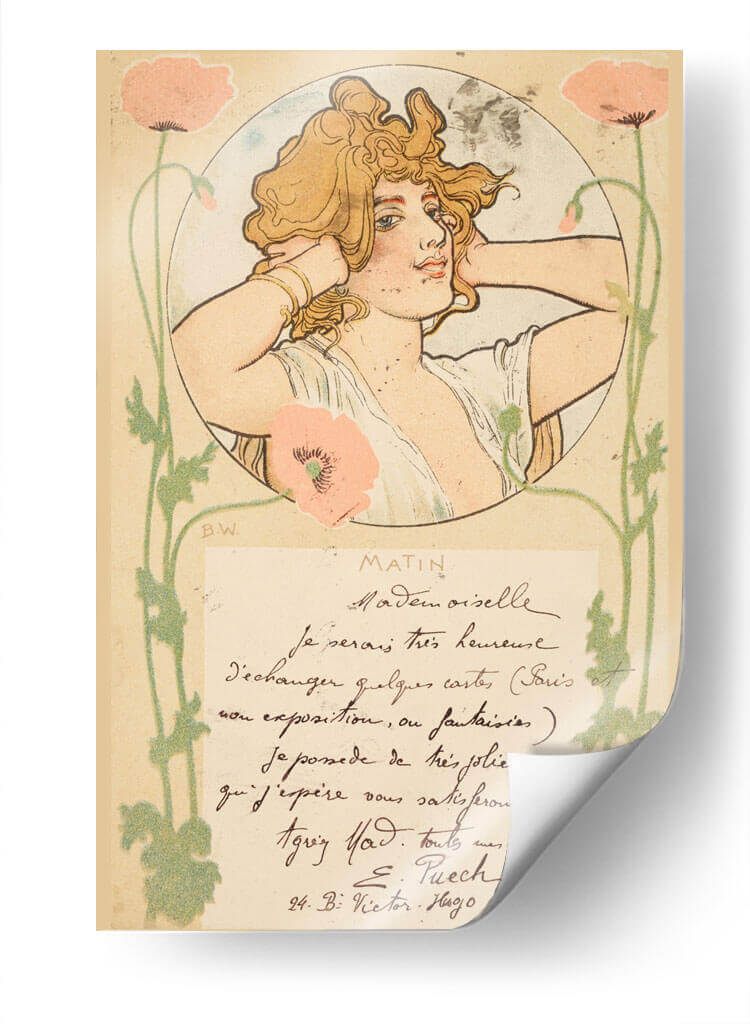 B.W.
MATIN
Mademoiselle
Je serais très heureuse
d'échanger quelques cartes (Paris et
non exposition, ou fantaisies)
Je possede de très jolie
qu'j'espère vous satisferon
Agréz Mad. toutes mes
E. Puech
24. Bd Victor. Hugo